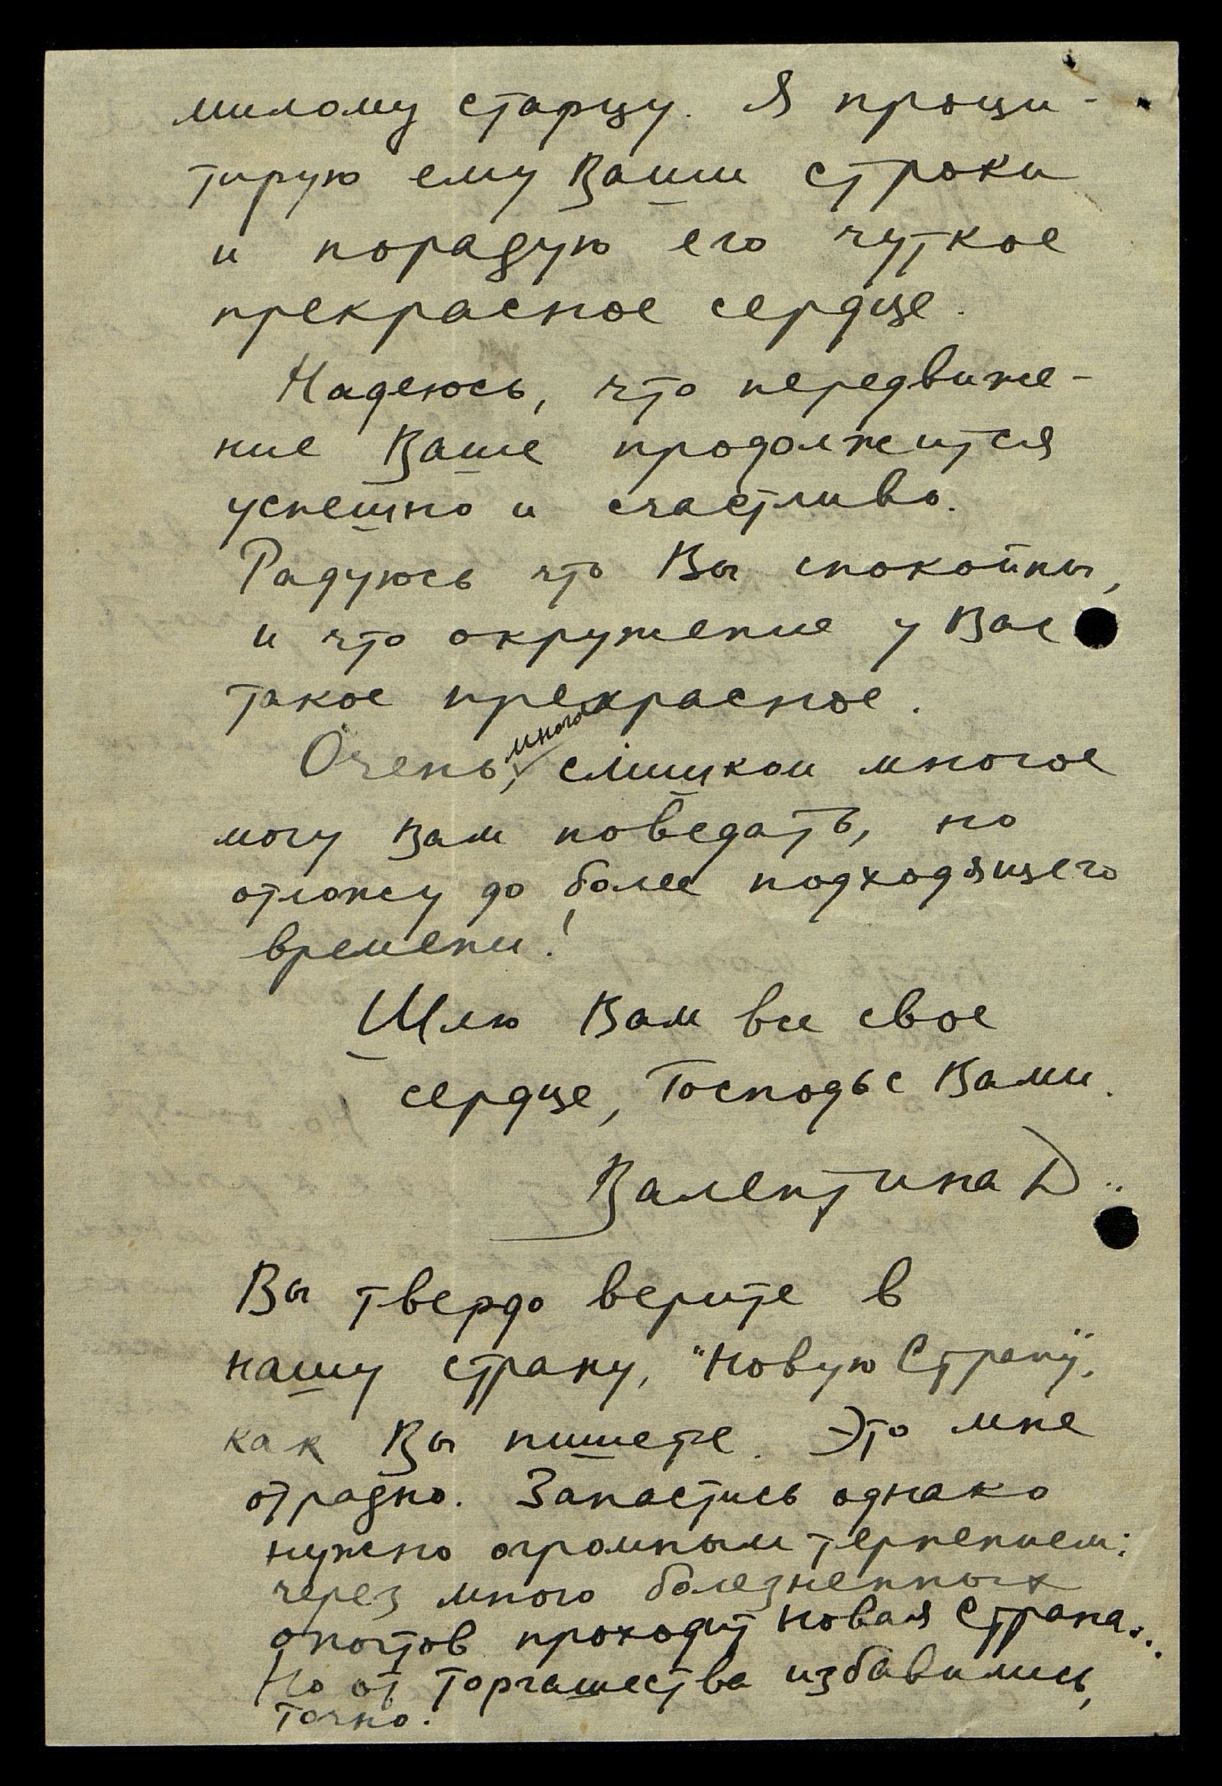 милому старцу. Я проци-
тирую ему Ваши строки
и порадую его чуткое
прекрасное сердце.
Надеюсь, что передвиже-
ние Ваше продолжится
успешно и счастливо.
Радуюсь что Вы спокойны,
и что окружение у Вас
такое прекрасное.
Очень, много, слишком многое
могу Вам поведать, но
отложу до более подходящего
времени!
Шлю Вам все свое
сердце, Господь с Вами.
Валентина Д..
Вы твердо верите в
нашу страну, "Новую Страну",
как Вы пишете. Это мне
отрадно. Запастись однако
нужно огромным терпением:
через много болезненных
опытов проходит Новая Страна...
Но от торгашества избавились,
точно.